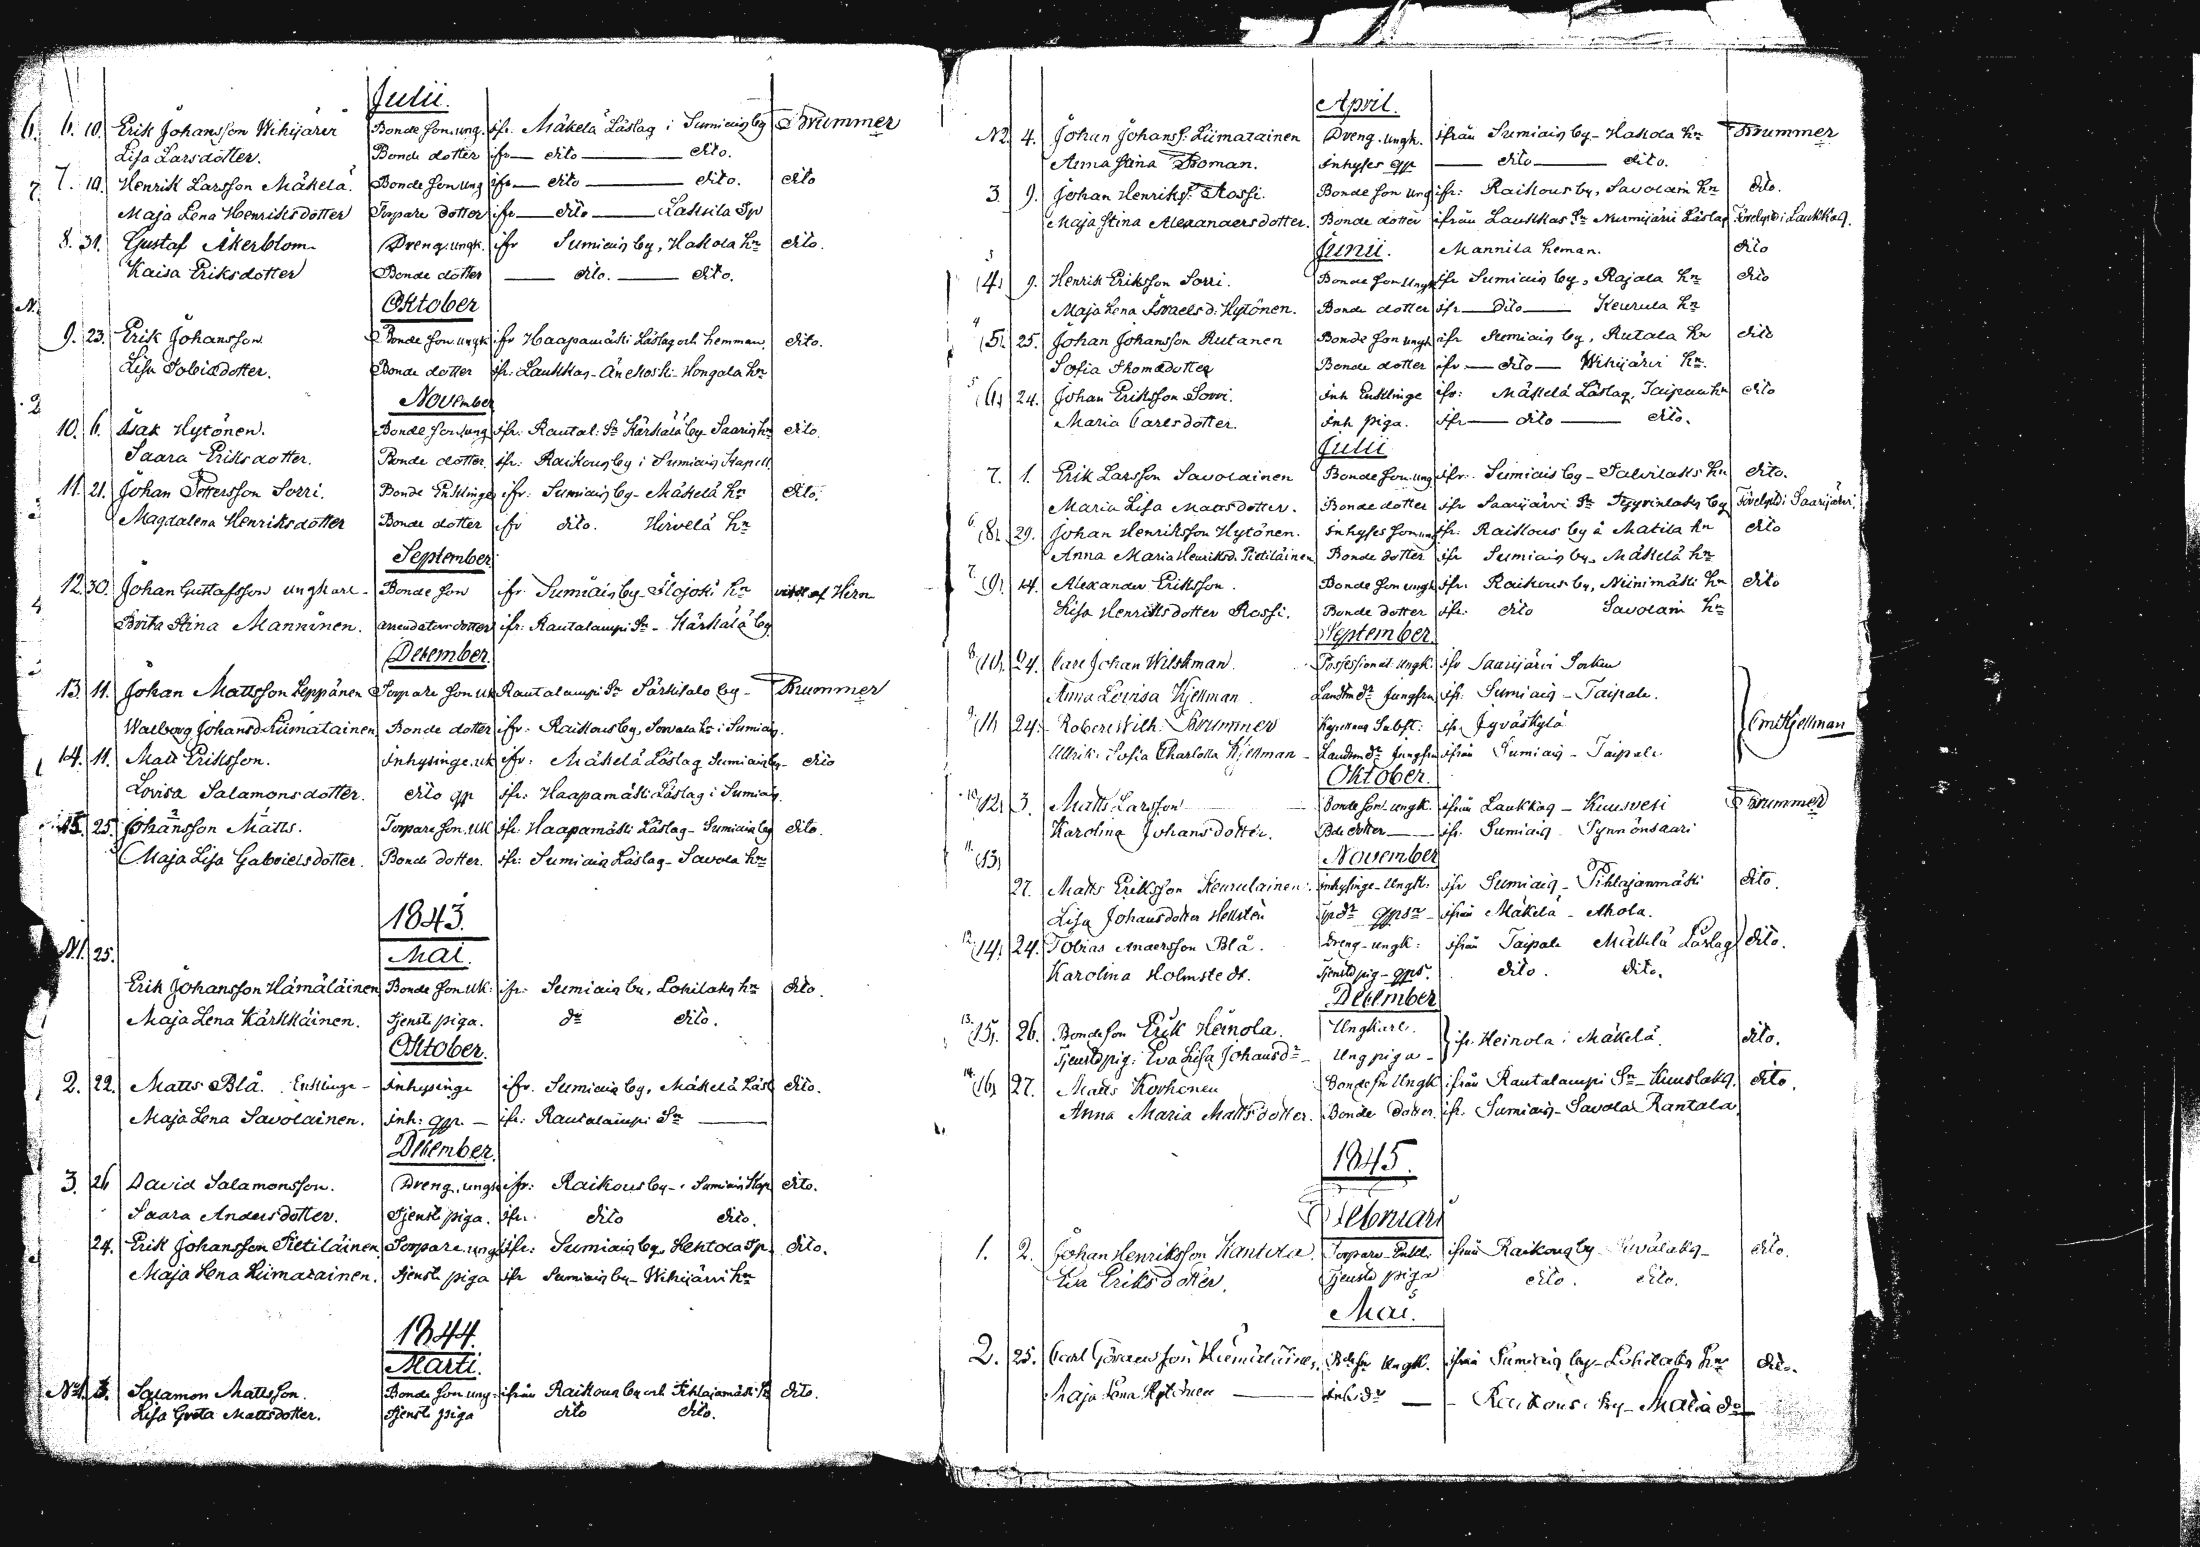 Julii.
6. 6. 10. Erik Johansson Wihijärvi Bonde son. ung. ifr. Mäkelä Läslag i Sumiais by Brummer
Lisa Larsdotter. Bonde dotter ifr — dito — dito.
7. 7. 10. Henrik Larsson Mäkelä. Bonde son ung ifr — dito — dito. dito
Maja Lena Henriksdotter Torpare dotter ifr — dito — Laksila Tp
8. 31. Gustaf Åkerblom Dreng. ungk. ifr Sumiais by, Hakola hn dito.
Kaisa Eriksdotter Bonde dotter — dito. — dito.
Oktober
9. 23. Erik Johansson Bonde son ungk ifr Haapamäki Läslag och hemman. dito.
Lisa Tobiædotter. Bonde dotter ifr. Laukkas - Änekoski - Hongola hn
November
10. 6. Isak Hytönen. Bonde son ung ifr. Rautal. Sn Kärkälä by Saaris hn dito.
Saara Eriksdotter. Bonde dotter. ifr. Raikous by i Sumiais Kapell
11. 21. Johan Pettersson Sorri. Bonde Enklinge ifr. Sumiais by - Mäkelä hn dito.
Magdalena Henriksdotter Bonde dotter ifr dito. Hirvelä hn
September
12. 30. Johan Gustafsson ungkarl - Bonde son ifr Sumiais by Slojoki hn af Hirn
Brita Stina Manninen. arrendators dotter ifr. Rautalampi Sn - Kärkälä by
December.
13. 11. Johan Mattsson Leppänen Torpare son uk Rautalampi Sn Särkisalo by - Brummer
Walborg Johansd. Liimatainen Bonde dotter ifr. Raikous by, Sorvala hn i Sumiais.
14. 11. Matt Eriksson. Inhysinge. uk ifr. Mäkelä Läslag Sumiais by - dito
Lovisa Salamonsdotter. dito qp ifr. Haapamäki Läslag i Sumiais.
15. 25. Johansson Matts. Torpare son. uk ifr. Haapamäki Läslag - Sumiais by dito.
Maja Lisa Gabrielsdotter. Bonde dotter. ifr: Sumiais Läslag - Savola hn
1843.
N.1. 25. Mai.
Erik Johansson Hämäläinen Bonde son uk: ifr. Sumiais by, Lohilaks hn dito.
Maja Lena Kärkkäinen. tjenste piga. do dito.
Oktober.
2. 22. Matts Blå. Enklinge - Inhysinge ifr. Sumiais by, Mäkelä Läsl dito.
Maja Lena Savolainen. inh: qp. — ifr. Rautalampi Sn —
December.
3. 26 David Salamonsson. Dreng. ungk ifr: Raikous by - i Sumiais Kap dito.
Saara Andersdotter. tjenste piga. ifr. dito dito.
24. Erik Johansson Pietiläinen Torpare. ungk ifr: Sumiais by, Hektola Tp. dito.
Maja Lena Liimatainen. tjenste piga ifr Sumiais by - Wihijärvi hn
1844.
Marti.
No 1. 3. Salamon Mattsson. Bonde son ung - ifrån Raikous by och Pihlajamäki hn dito.
Lisa Greta Mattsdotter. tjenste piga dito dito.
April.
N2. 4. Johan Johanss: Liimatainen Dreng. ungk. ifrån Sumiais by - Hakola hn Brummer
Anna Stina Boman. Inhyses qp — dito — dito.
3. 9. Johan Henrikss: Rossi. Bonde son ung ifr: Raikous by, Savolain hn dito.
Maja Stina Alexandersdotter. Bonde dotter ifrån Laukkas Sn Nurmijärvi Läslag i Laukkas.
Junii. Mannila heman. dito
3 4. 9. Henrik Eriksson Sorri. Bonde son Ungk ifr Sumiais by, Rajala hn dito
Maja Lena Israels d: Hytönen. Bonde dotter ifr — dito — Keurula hn
4 5. 25. Johan Johansson Rutanen Bonde son ungk ifr Sumiais by, Rutala hn dito
Sofia Thomædotter Bonde dotter ifr — dito — Wihijärvi hn.
5 6. 24. Johan Eriksson Sorri. Inh Enklinge ifr: Mäkelä Läslag, Taipale hn dito
Maria Carlsdotter. Inh piga. ifr — dito — dito.
Julii
7. 1. Erik Larsson Savolainen Bonde son ung ifr. Sumiais by - Salvilaks hn dito.
Maria Lisa Mattsdotter. Bonde dotter ifr Saarijärvi Sn by i Saarijärvi.
6. 8. 29. Johan Henriksson Hytönen. Inhyses son ung ifr. Raikous by å Matila hn dito
Anna Maria Henriksd. Pietiläinen Bonde dotter ifr Sumiais by, Mäkelä hn
7. 9. 14. Alexander Eriksson. Bonde son ungk ifr. Raikous by, Niinimäki hn dito
Lisa Henriksdotter Rossi. Bonde dotter ifr. dito Savolain hn
September.
8. 10. 24. Carl Johan Wilskman. Possessionat. ungk. ifr Saarijärvi Socken
Anna Lovisa Kjellman. Landtm dr Jungfru ifr. Sumiais - Taipale.
9. 11 24. Robert Wilh: Brummer Kapellans Subst: ifr. Jyväskylä Emil Kjellman
Ulrika Sofia Charlotta Kjellman - Landtm dr Jungfru ifrån Sumiais - Taipale
Oktober.
10. 12. 3. Matts Larsson — Bonde son ungk. ifrån Laukkas - Kuusvesi Brummer
Karolina Johansdotter. Bde dotter — ifr. Sumiais - Synnönsaari
11. 13. November
27. Matts Eriksson Keurulainen. Inhysinge - Ungk. ifr Sumiais - Pihlajanmäki dito.
Lisa Johansdotter Hellstén ifrån Mäkelä - Ahola.
12. 14. 24. Tobias Andersson Blå. dreng - ungk: ifrån Taipale Mäkelä Läslag dito.
Karolina Holmstedt. tjenste pig - qps. dito. dito.
December
13. 15. 26. Bonde son Erik Heinola. Ungkarl. ifr. Heinola i Mäkelä. dito.
Tjenste pig: Eva Lisa Johansdr - Ung piga -
14. 16. 27. Matts Korhonen Bonde sn Ungk ifrån Rautalampi Sn - Kuuslaks. dito.
Anna Maria Mattsdotter. Bonde dotter. ifr. Sumiais - Savola Rantala.
1845.
Februari
1. 2. Johan Henriksson Kantola Torpare - Enkl: ifrån Raikous by dito.
Eva Eriksdotter. Tjenste piga dito. dito.
Mai.
2. 25. Carl Göransson Hämäläinen, Bde sn Ungk. ifrån Sumiais by - Lohilaks hn dito.
Maja Lena Hytönen — Inh: dr — - Raikous by - Matila do